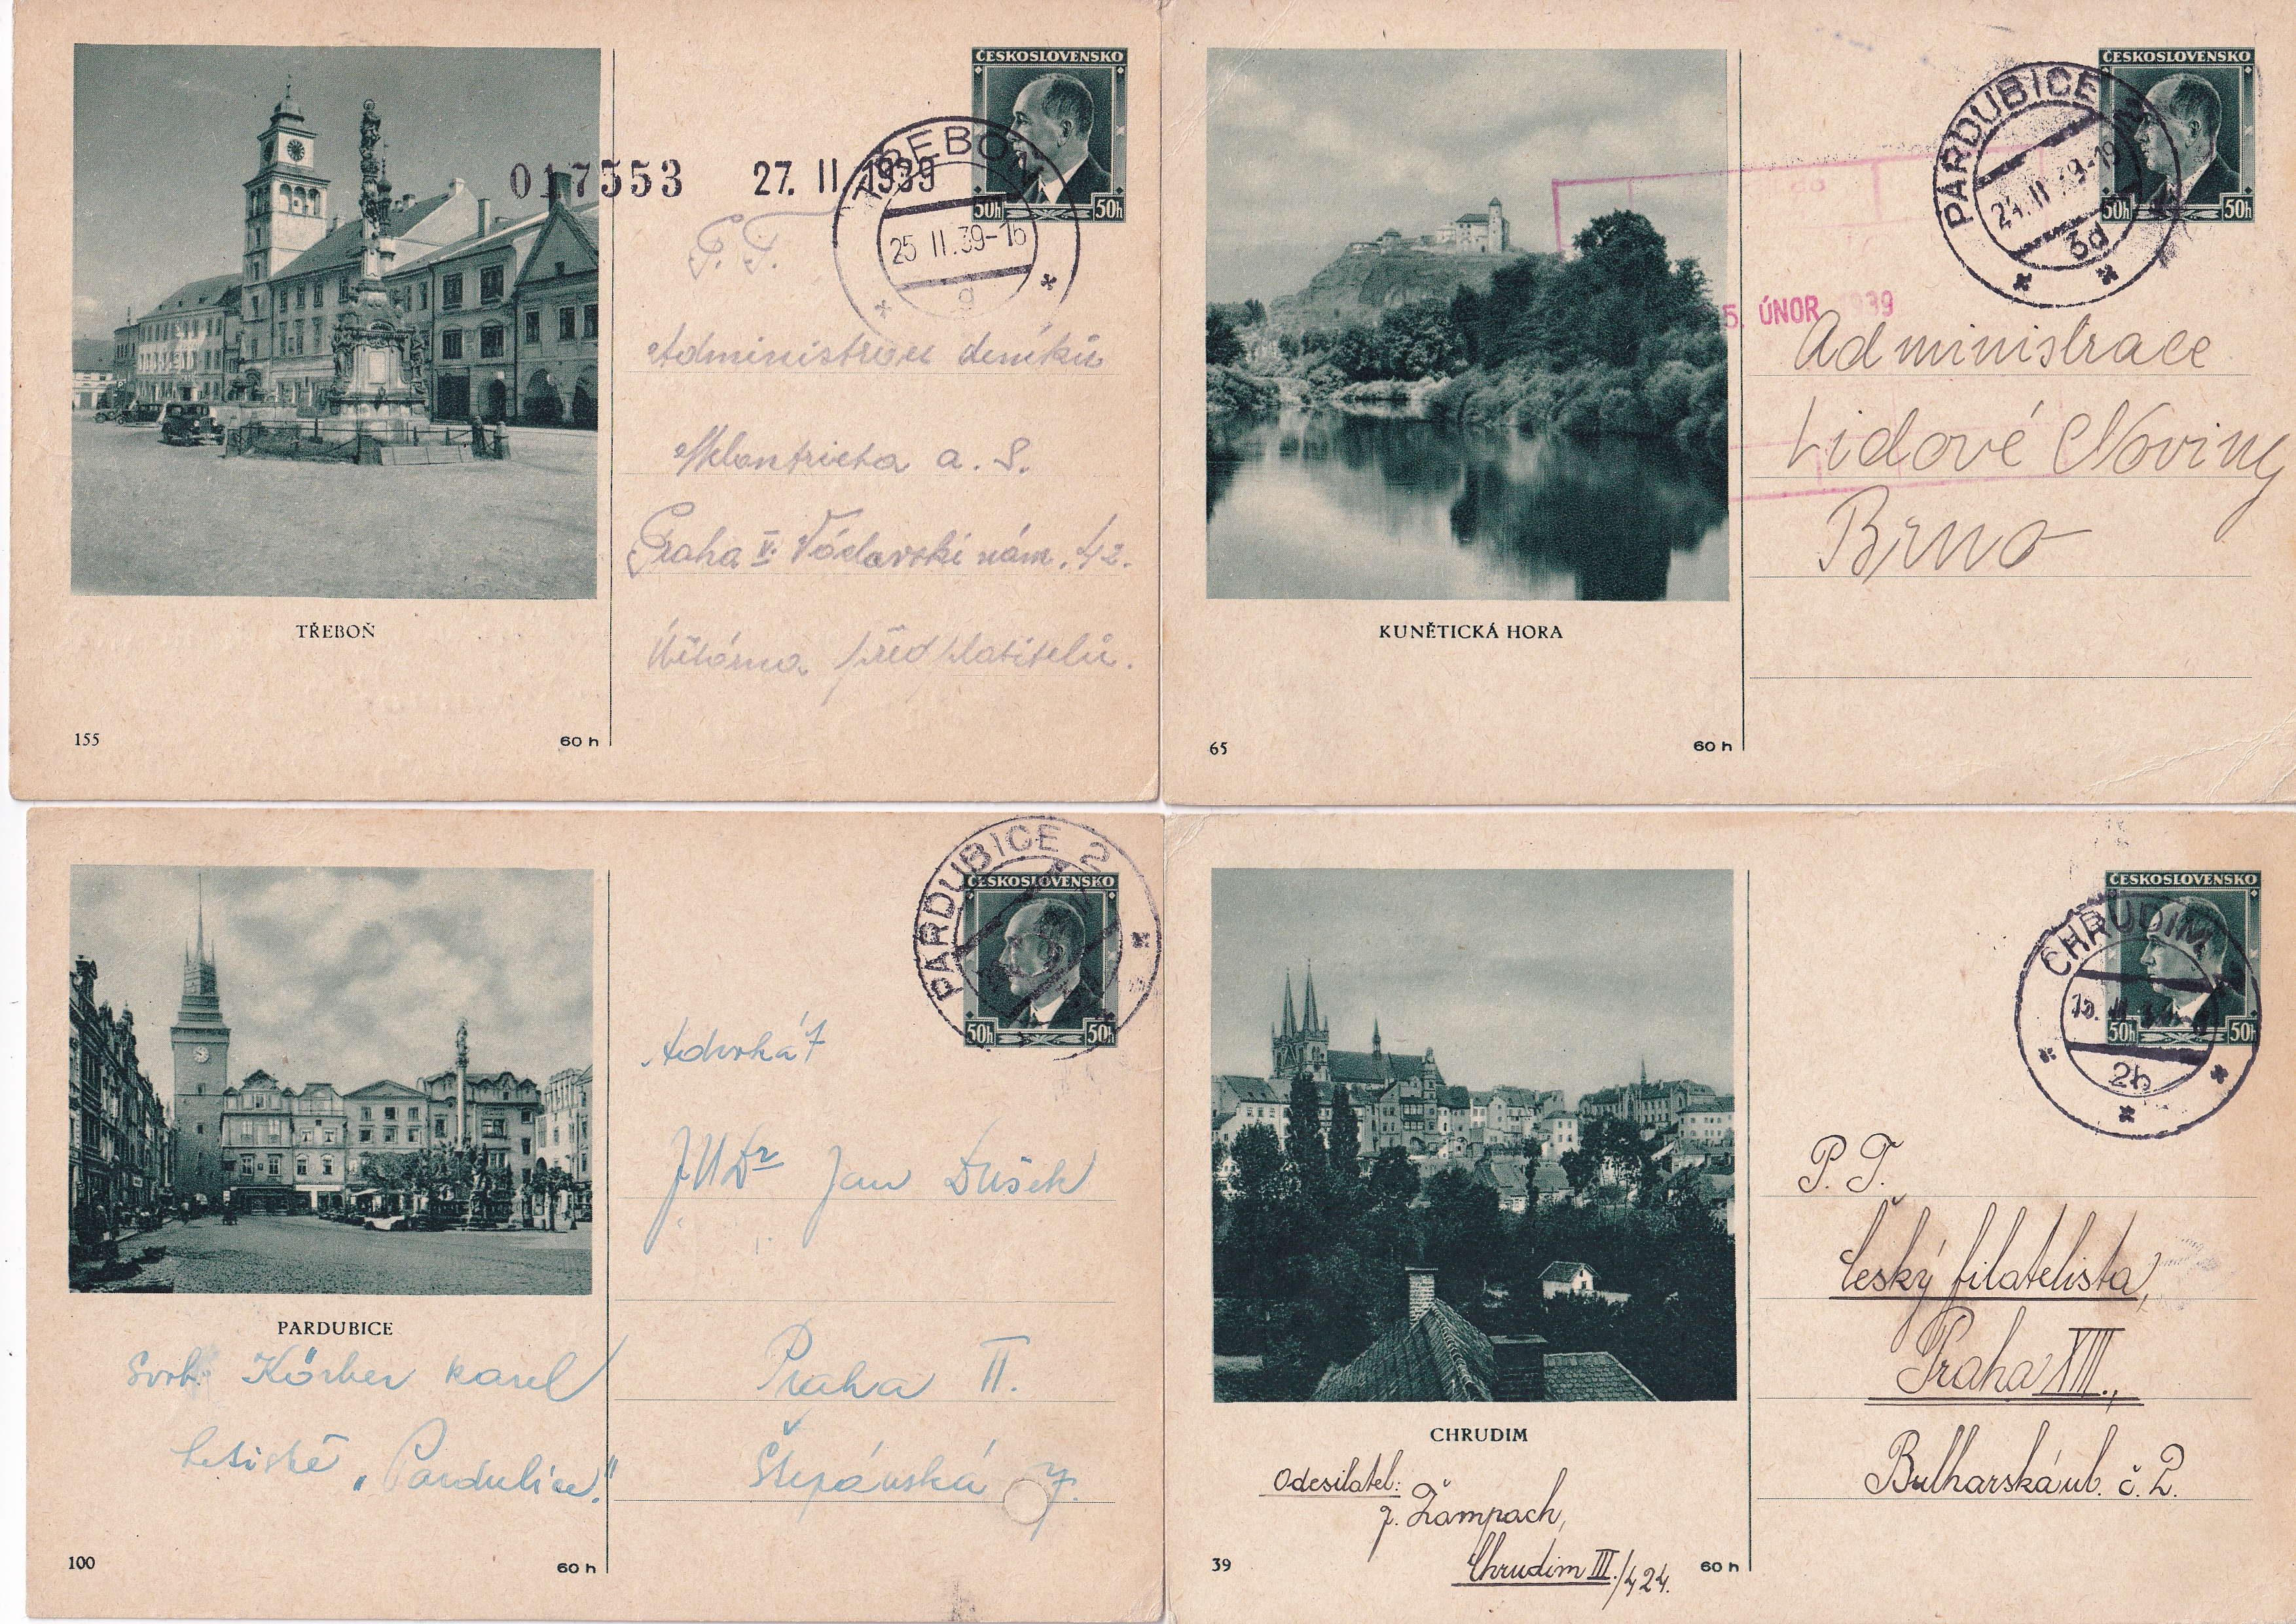 ČESKOSLOVENSKO
50h 50h
TŘEBOŇ
25 II.39-16
g
017553 27. II. 1939
P. T.
Administraci deníků
Melantricha a. S.
Praha II. Václavské nám. 42.
předplatitelů.
TŘEBOŇ
155
60 h
ČESKOSLOVENSKO
50h 50h
PARDUBICE 2
24.II.39-19
3d
5. ÚNOR 1939
Administrace
Lidové Noviny
Brno
KUNĚTICKÁ HORA
65
60 h
ČESKOSLOVENSKO
50h 50h
PARDUBICE 2
Advokát
JUDr Jan Dušek
Praha II.
Štěpánská 7.
PARDUBICE
Körber Karel
letiště „Pardubice."
100
60 h
ČESKOSLOVENSKO
50h 50h
CHRUDIM
2b
P. T.
Český filatelista,
Praha XIII.,
Bulharská ul. č. 2.
CHRUDIM
Odesilatel:
J. Žampach,
Chrudim III./424.
39
60 h